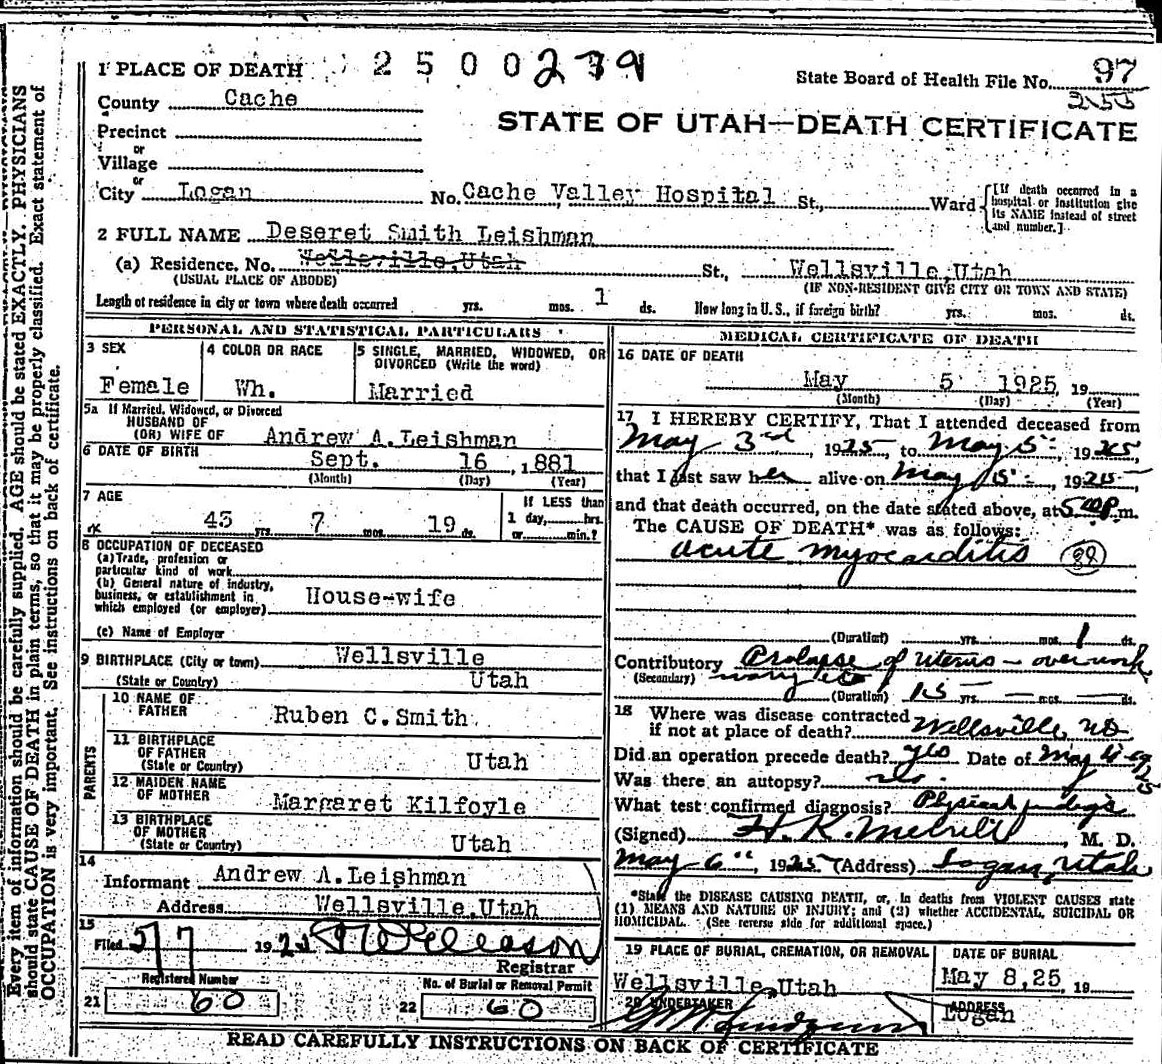 1 PLACE OF DEATH 2500279
State Board of Health File No. 97
255
County Cache
STATE OF UTAH—DEATH CERTIFICATE
Precinct
or
Village
or
City Logan No. Cache Valley Hospital St., Ward
[If death occurred in a hospital or institution give its NAME instead of street and number.]
2 FULL NAME Deseret Smith Leishman
(a) Residence. No. Wellsville, Utah St., Wellsville, Utah
(USUAL PLACE OF ABODE) (IF NON-RESIDENT GIVE CITY OR TOWN AND STATE)
Length of residence in city or town where death occurred yrs. mos. 1 ds. How long in U.S., if foreign birth? yrs. mos. ds.
PERSONAL AND STATISTICAL PARTICULARS
3 SEX 4 COLOR OR RACE 5 SINGLE, MARRIED, WIDOWED, OR DIVORCED (Write the word)
Female Wh. Married
5a If Married, Widowed, or Divorced
HUSBAND OF
(OR) WIFE OF Andrew A. Leishman
6 DATE OF BIRTH Sept. 16, 1881
(Month) (Day) (Year)
7 AGE If LESS than
43 yrs. 7 mos. 19 ds. 1 day, hrs.
or min.?
8 OCCUPATION OF DECEASED
(a) Trade, profession or
particular kind of work
(b) General nature of industry,
business, or establishment in
which employed (or employer) House-wife
(c) Name of Employer
9 BIRTHPLACE (City or town) Wellsville
(State or Country) Utah
PARENTS
10 NAME OF
FATHER Ruben C. Smith
11 BIRTHPLACE
OF FATHER
(State or Country) Utah
12 MAIDEN NAME
OF MOTHER Margaret Kilfoyle
13 BIRTHPLACE
OF MOTHER
(State or Country) Utah
14
Informant Andrew A. Leishman
Address Wellsville, Utah
15
Filed 5/7 1925
Registrar
Registered Number No. of Burial or Removal Permit
21 60 22 60
MEDICAL CERTIFICATE OF DEATH
16 DATE OF DEATH
May 5 1925, 19
(Month) (Day) (Year)
17 I HEREBY CERTIFY, That I attended deceased from
May 3rd, 1925, to May 5, 1925,
that I last saw her alive on May 5, 1925,
and that death occurred, on the date stated above, at 5:00 P.m.
The CAUSE OF DEATH* was as follows:
acute myocarditis
(Duration) yrs. mos. 1 ds.
Contributory Prolapse of Uterus – overwork
(Secondary)
(Duration) 15 yrs. — mos. — ds.
18 Where was disease contracted
if not at place of death? Wellsville, Ut
Did an operation precede death? yes Date of May 4-1925
Was there an autopsy? no.
What test confirmed diagnosis? Physical findings
(Signed) H. K. Merrill, M. D.
May 6", 1925 (Address) Logan, Utah
*State the DISEASE CAUSING DEATH, or, in deaths from VIOLENT CAUSES state
(1) MEANS AND NATURE OF INJURY; and (2) whether ACCIDENTAL, SUICIDAL OR
HOMICIDAL. (See reverse side for additional space.)
19 PLACE OF BURIAL, CREMATION, OR REMOVAL DATE OF BURIAL
Wellsville, Utah May 8,25, 19
20 UNDERTAKER ADDRESS
Logan
READ CAREFULLY INSTRUCTIONS ON BACK OF CERTIFICATE
Every item of information should be carefully supplied. AGE should be stated EXACTLY. PHYSICIANS
should state CAUSE OF DEATH in plain terms, so that it may be properly classified. Exact statement of
OCCUPATION is very important. See instructions on back of certificate.